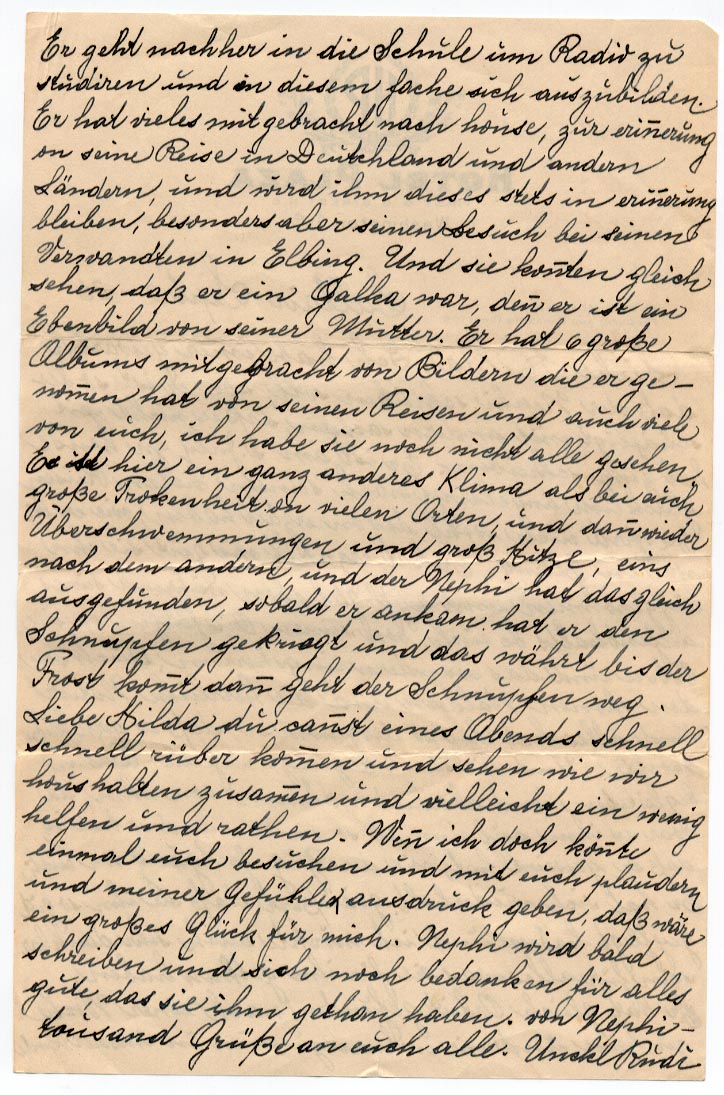 Er geht nachher in die Schule um Radio zu
studiren und in diesem fache sich auszubilden.
Er hat vieles mitgebracht nach house, zur erin̄erung
an seine Reise in Deutchland und andern
Ländern, und wird ihm dieses stets in erin̄erung
bleiben, besonders aber seinen besuch bei seinen
Verwandten in Elbing. Und sie kon̄ten gleich
sehen, daß er ein Galka war, den̄ er ist ein
Ebenbild von seiner Mutter. Er hat 6 große
Albums mitgebracht von Bildern die er ge-
nom̄en hat von seinen Reisen und auch viele
von euch, ich habe sie noch nicht alle gesehen,
Es ist hier ein ganz anderes Klima als bei euch
große Trokenheit an vielen Orten, und dan̄ wieder
Überschwemmungen und groß Hitze, eins
nach dem andern, und der Nephi hat das gleich
ausgefunden, sobald er ankam hat er den
Schnupfen gekriegt und das währt bis der
Frost kom̄t dan̄ geht der Schnupfen weg.
Liebe Hilda du can̄st eines Abends schnell
schnell rüber kom̄en und sehen wie wir
haushalten zusam̄en und vielleicht ein wenig
helfen und rathen. Wen̄ ich doch kön̄te
einmal euch besuchen und mit euch plaudern
und meiner Gefühle ausdruck geben, daß wäre
ein großes Glück für mich. Nephi wird bald
schreiben und sich noch bedanken für alles
gute, das sie ihm gethan haben. von Nephi-
tausand Grüße an euch alle. Unckl Rudi